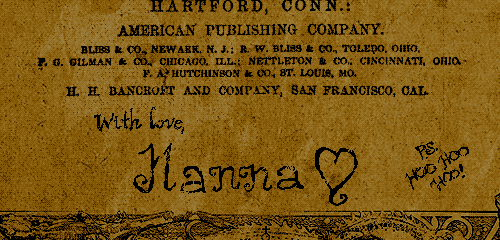 HARTFORD, CONN.:
AMERICAN PUBLISHING COMPANY.
BLISS & CO., NEWARK, N. J.; R. W. BLISS & CO., TOLEDO, OHIO.
F. G. GILMAN & CO., CHICAGO, ILL.; NETTLETON & CO., CINCINNATI, OHIO.
F. A. HUTCHINSON & CO., ST. LOUIS, MO.
H. H. BANCROFT AND COMPANY, SAN FRANCISCO, CAL.
With love,
Hanna ♡
P.S.
HOO HOO
HOO!